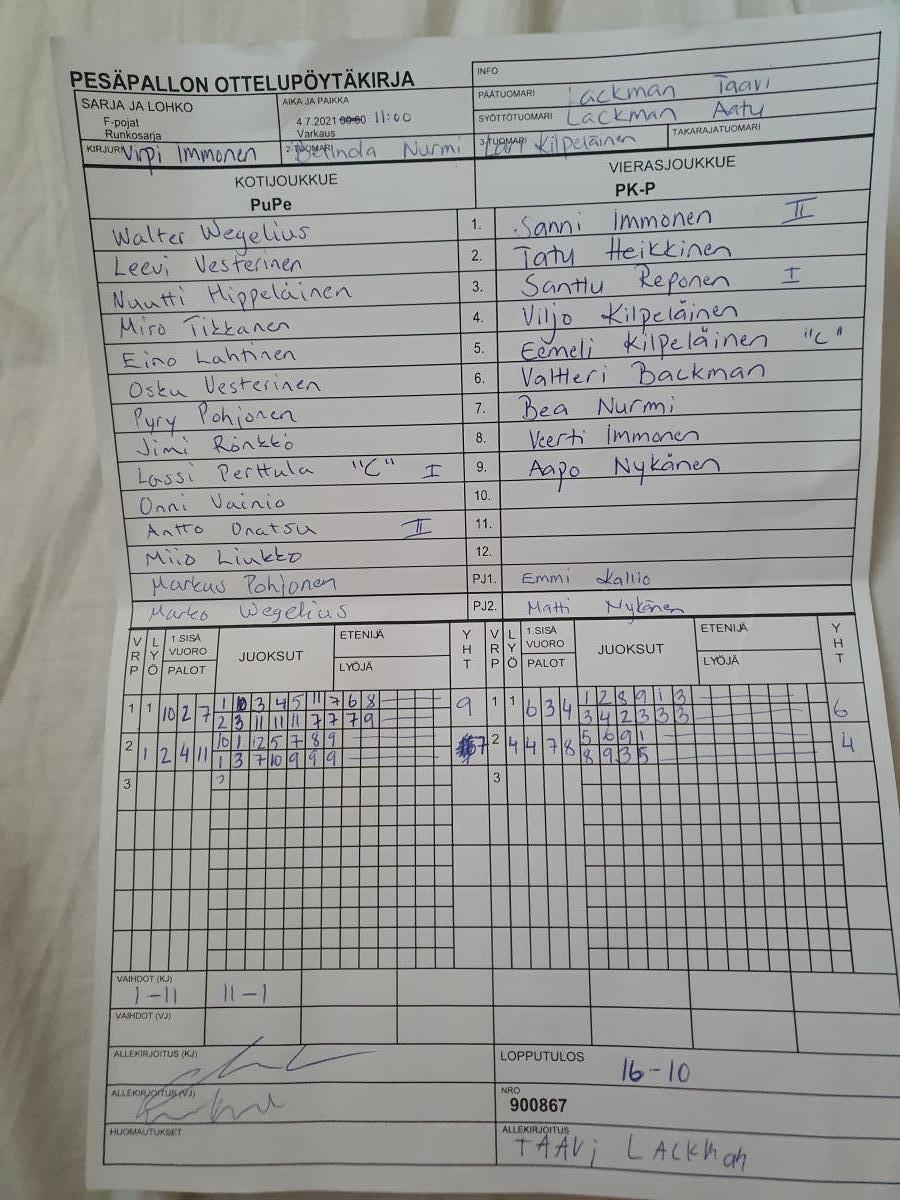 PESÄPALLON OTTELUPÖYTÄKIRJA
INFO
SARJA JA LOHKO
F-pojat
Runkosarja
AIKA JA PAIKKA
4.7.2021 00:00 11:00
Varkaus
PÄÄTUOMARI Lackman Taavi
SYÖTTÖTUOMARI Lackman Aatu
KIRJURI Virpi Immonen
2-TUOMARI Belinda Nurmi
3-TUOMARI Kilpeläinen
TAKARAJATUOMARI
KOTIJOUKKUE
PuPe
VIERASJOUKKUE
PK-P
Walter Wegelius 1. Sanni Immonen II
Leevi Vesterinen 2. Tatu Heikkinen
Nuutti Hippeläinen 3. Santtu Reponen I
Miro Tikkanen 4. Viljo Kilpeläinen
Eino Lahtinen 5. Eemeli Kilpeläinen "C"
Osku Vesterinen 6. Valtteri Backman
Pyry Pohjonen 7. Bea Nurmi
Jimi Rönkkö 8. Veerti Immonen
Lassi Perttula "C" I 9. Aapo Nykänen
Onni Vainio 10.
Antto Onatsu II 11.
Miio Liukko 12.
Markus Pohjonen PJ1. Emmi Kallio
Marko Wegelius PJ2. Matti Nykänen
VRP LYÖ 1.SISÄ VUORO PALOT JUOKSUT ETENIJÄ LYÖJÄ YHT VRP LYÖ 1.SISÄ VUORO PALOT JUOKSUT ETENIJÄ LYÖJÄ YHT
1 1 10 2 7 1 10 3 4 5 11 7 6 8 9 1 1 6 3 4 1 2 8 9 1 3 6
2 3 11 11 11 7 7 7 9 3 4 2 3 3 3
2 1 2 4 11 10 1 12 5 7 8 9 7 2 4 4 7 8 5 6 9 1 4
1 3 7 10 9 9 9 8 9 3 5
3 3
VAIHDOT (KJ)
1-11 11-1
VAIHDOT (VJ)
ALLEKIRJOITUS (KJ)
LOPPUTULOS
16-10
ALLEKIRJOITUS (VJ)
NRO
900867
HUOMAUTUKSET
ALLEKIRJOITUS
TAAVi LACKMan